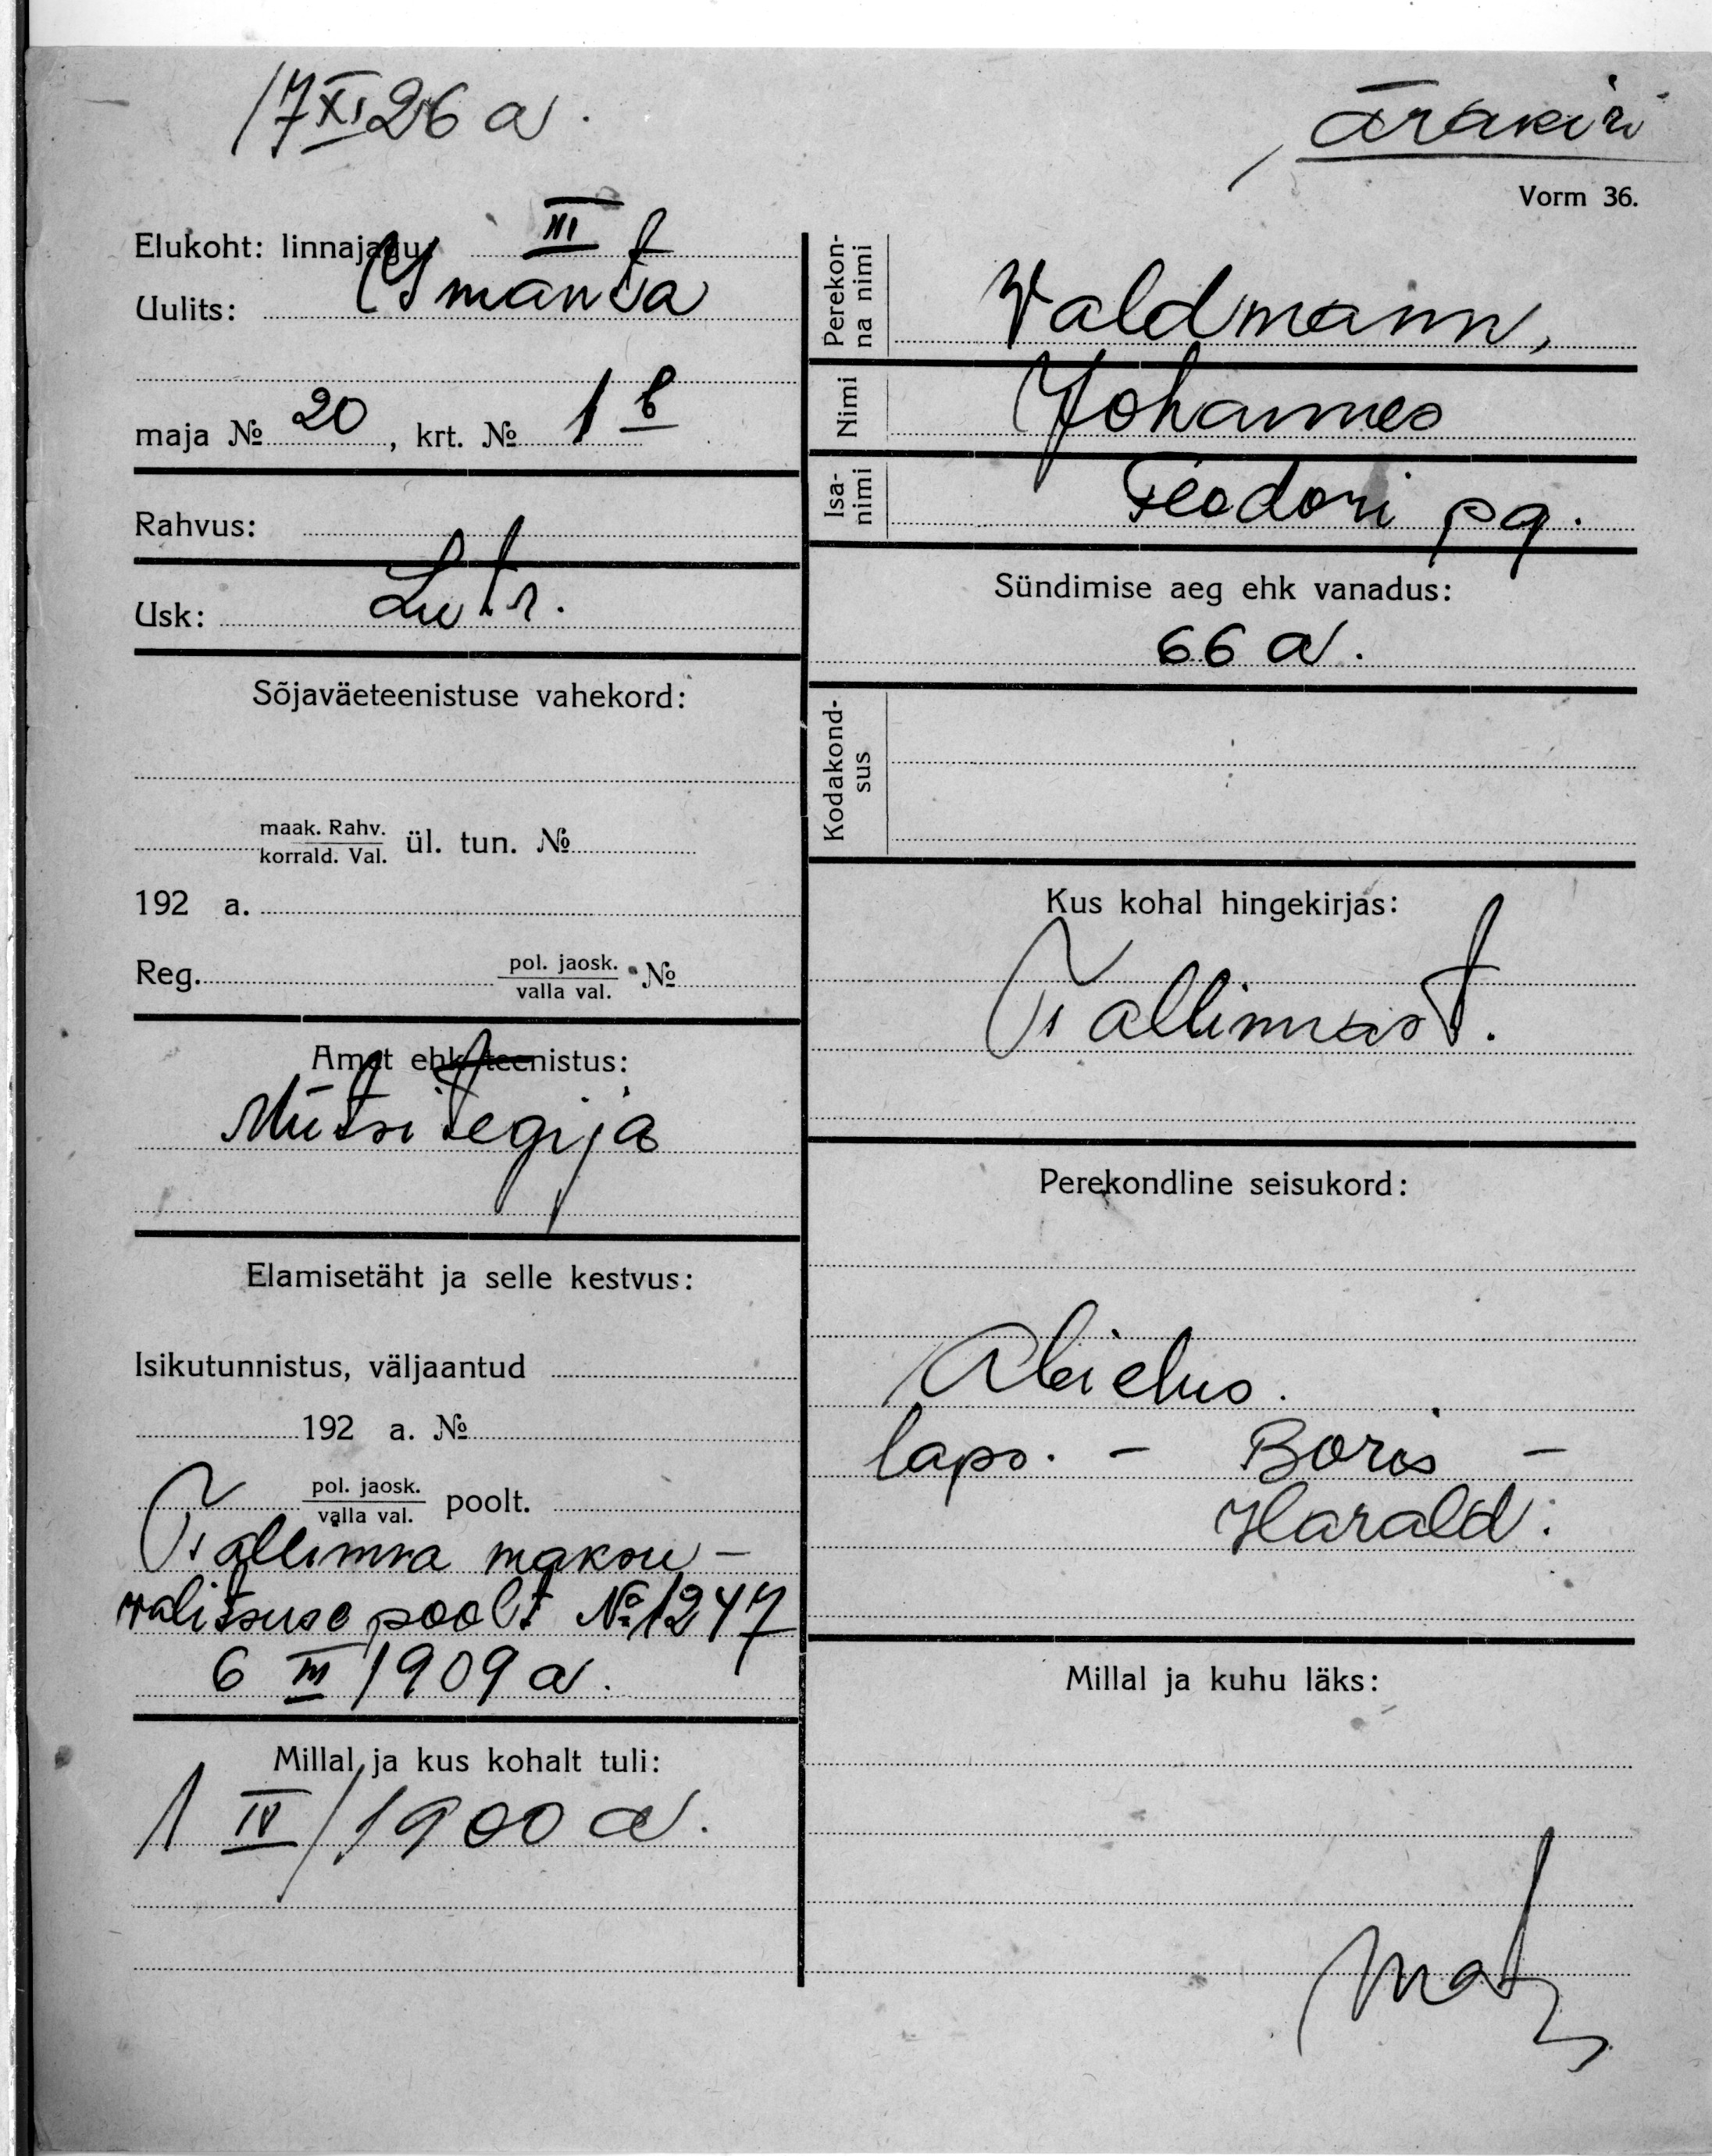 17 XI 26 a.
Ärakiri
Vorm 36.
Elukoht: linnajagu III
Uulits: Ymanta
maja № 20, krt. № 1 b
Rahvus:
Usk: Lutr.
Sõjaväeteenistuse vahekord:
maak. Rahv.
korrald. Val. ül. tun. №
192 a.
Reg. pol. jaosk.
valla val. №
Amet ehk teenistus:
Mütsitegija
Elamisetäht ja selle kestvus:
Isikutunnistus, väljaantud
192 a. №
pol. jaosk.
valla val. poolt.
Tallinna maksu-
valitsuse poolt № 1247
6 III 1909 a.
Millal ja kus kohalt tuli:
1 IV/1900 a.
Perekon-
na nimi Valdmann,
Nimi Johannes
Isa-
nimi Feodori pg.
Sündimise aeg ehk vanadus:
66 a.
Kodakond-
sus
Kus kohal hingekirjas:
Tallinnast.
Perekondline seisukord:
Abielus.
laps. - Boris -
Harald.
Millal ja kuhu läks: